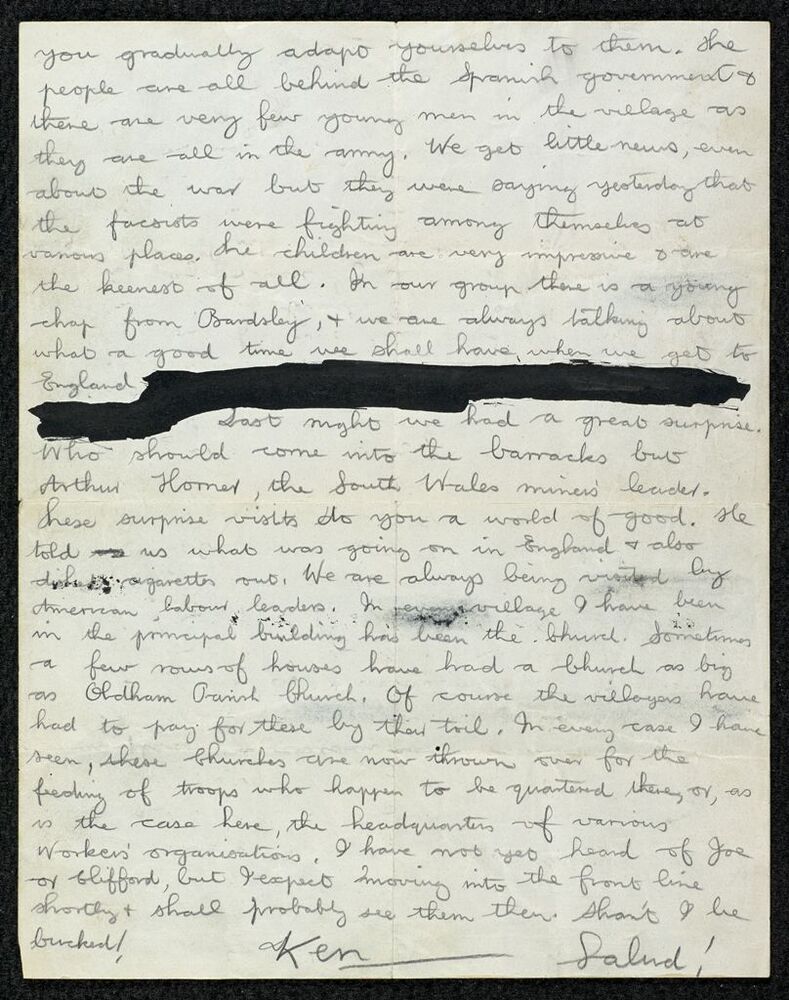 you gradually adapt yourselves to them. The
people are all behind the Spanish government &
there are very few young men in the village as
they are all in the army. We get little news, even
about the war but they were saying yesterday that
the fascists were fighting among themselves at
various places. The children are very impressive & are
the keenest of all. In our group there is a young
chap from Bardsley, & we are always talking about
what a good time we shall have, when we get to
England
Last night we had a great surprise.
Who should come into the barracks but
Arthur Horner, the South Wales miners' leader.
These surprise visits do you a world of good. He
told us what was going on in England & also
cigarettes out. We are always being visited by
American labour leaders. In every village I have been
in the principal building has been the Church. Sometimes
a few rows of houses have had a Church as big
as Oldham Parish Church. Of course the villagers have
had to pay for these by their toil. In every case I have
seen, these Churches are now thrown over for the
feeding of troops who happen to be quartered there, or, as
is the case here, the headquarters of various
Workers' organisations. I have not yet heard of Joe
or Clifford, but I expect moving into the front line
shortly & shall probably see them then. Shan't I be
bucked!
Ken Salud!